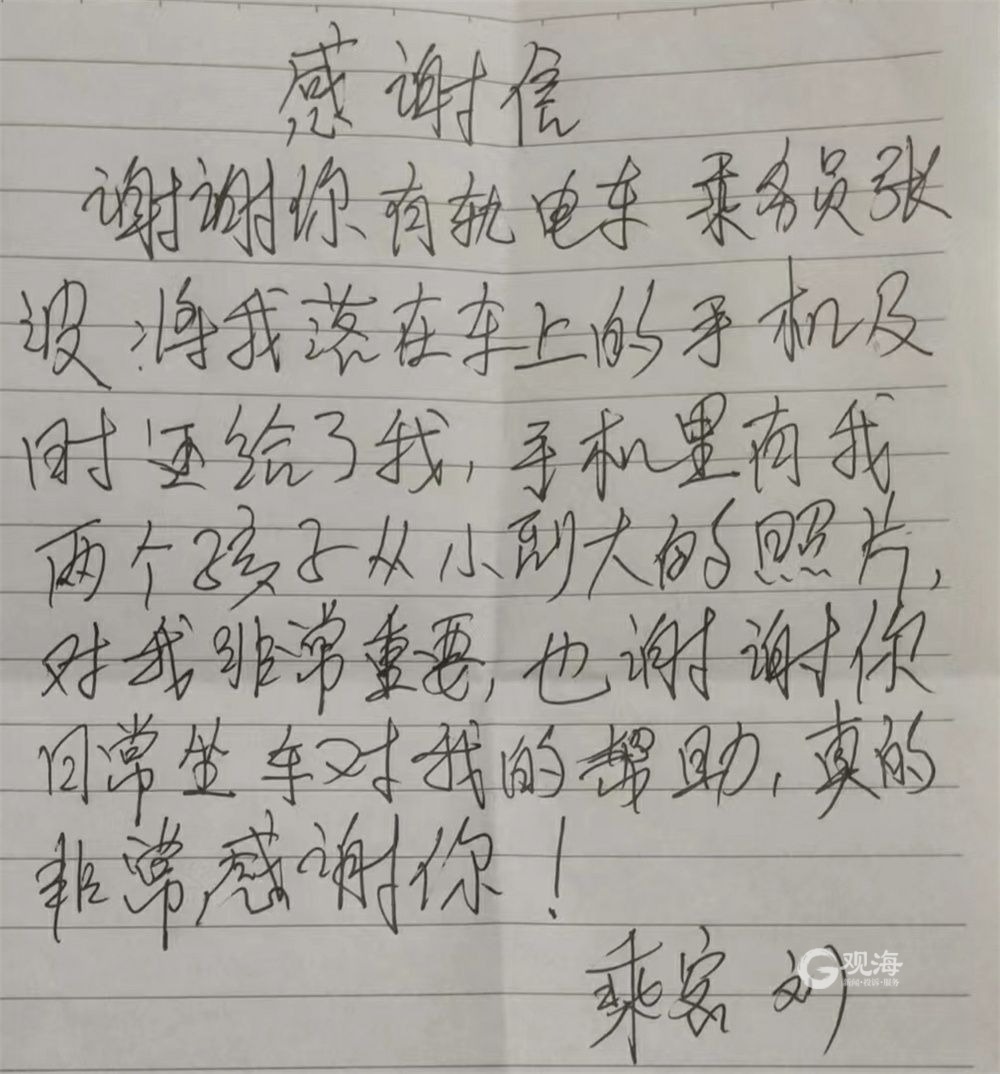 感谢信
谢谢你有轨电车乘务员张
波将我落在车上的手机及
时还给了我,手机里有我
两个孩子从小到大的照片,
对我非常重要,也谢谢你
日常坐车对我的帮助,真的
非常感谢你!
乘客 刘
观海
新闻·投诉·服务